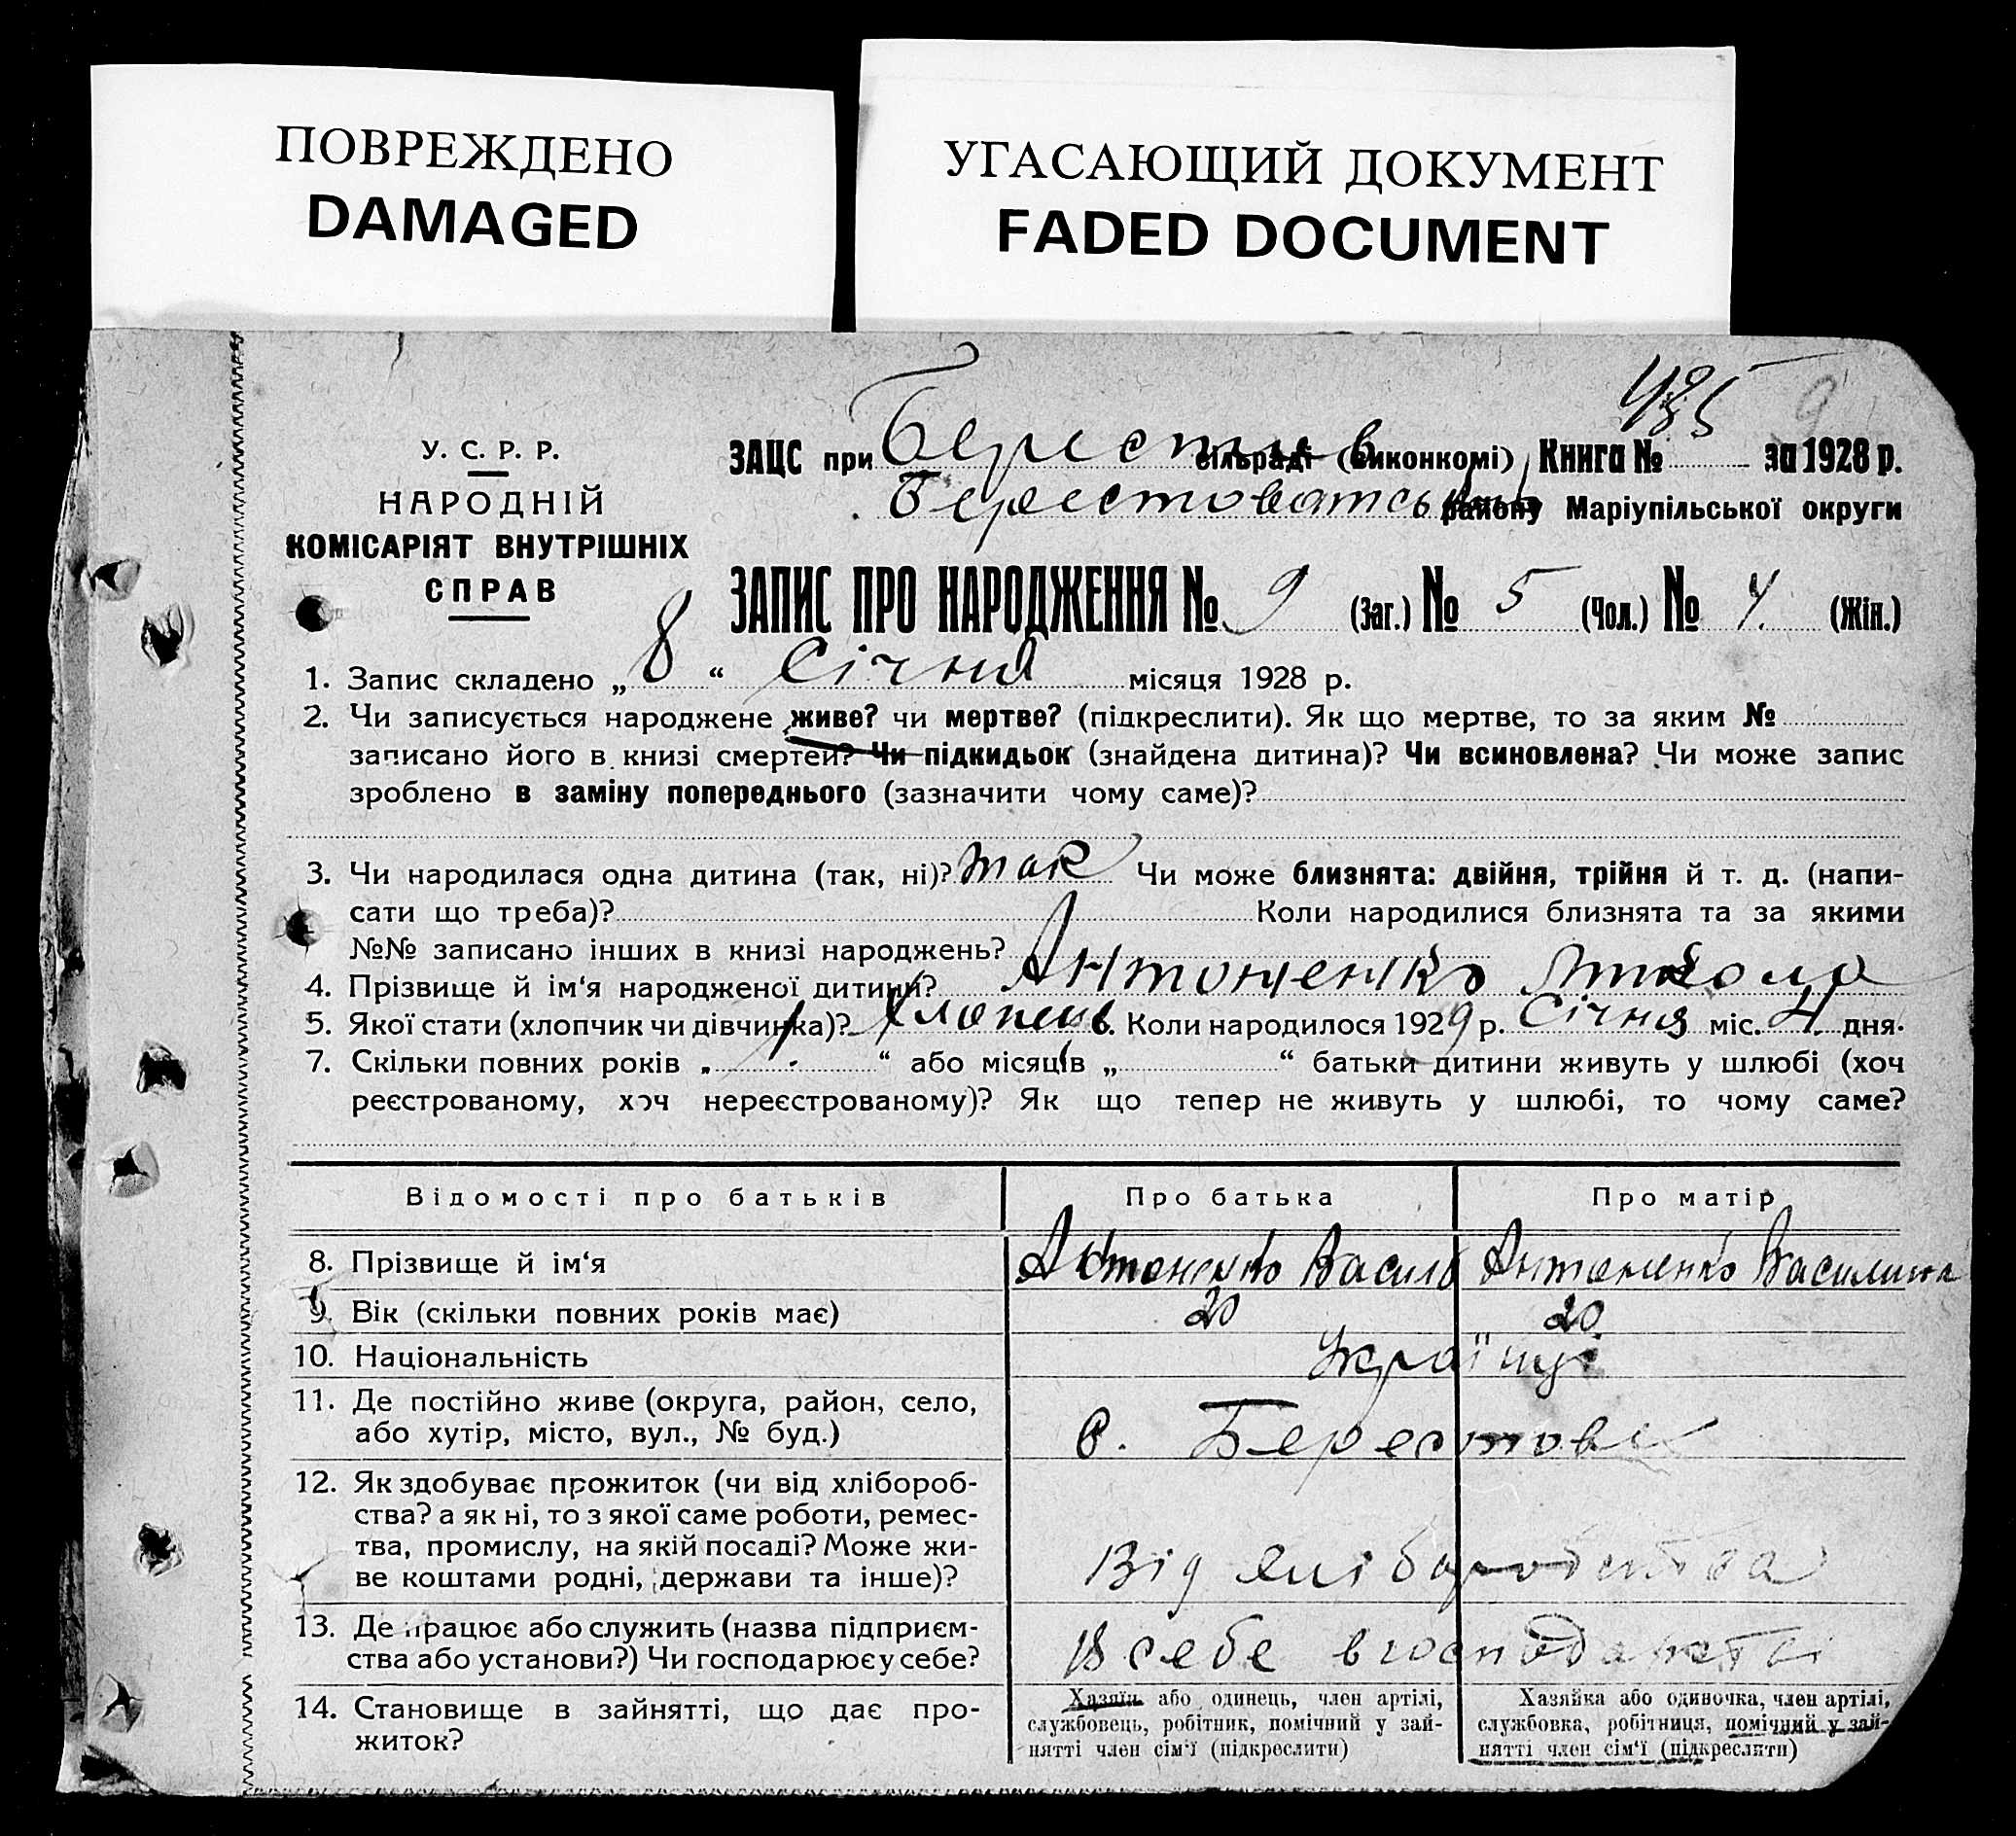 ПОВРЕЖДЕНО
DAMAGED
УГАСАЮЩИЙ ДОКУМЕНТ
FADED DOCUMENT
9
У. С. Р. Р.
НАРОДНІЙ
КОМІСАРІЯТ ВНУТРІШНІХ
СПРАВ
ЗАЦС при Берестов сільраді (виконкомі) Книга № за 1928 р.
Берестоватськ району Маріупільської округи
ЗАПИС ПРО НАРОДЖЕННЯ № 9 (Заг.) № 5 (Чол.) № 4. (Жін.)
1. Запис складено „ 8 “ Січня місяця 1928 р.
2. Чи записується народжене живе? чи мертве? (підкреслити). Як що мертве, то за яким №
записано його в книзі смертей? Чи підкидьок (знайдена дитина)? Чи всиновлена? Чи може запис
зроблено в заміну попереднього (зазначити чому саме)?
3. Чи народилася одна дитина (так, ні)? так Чи може близнята: двійня, трійня й т. д. (напи-
сати що треба)? Коли народилися близнята та за якими
№№ записано інших в книзі народжень?
4. Прізвище й ім‘я народженої дитини? Антоненко Микола
5. Якої стати (хлопчик чи дівчинка)? Хлопець. Коли народилося 1929 р. Січня міс. 4 дня.
7. Скільки повних років „ 1. “ або місяців „ “ батьки дитини живуть у шлюбі (хоч
реєстрованому, хоч нереєстрованому)? Як що тепер не живуть у шлюбі, то чому саме?
Відомості про батьків Про батька Про матір
8. Прізвище й ім‘я Антоненко Василь Антоненко Василина
9. Вік (скільки повних років має) 20 20
10. Національність Українці
11. Де постійно живе (округа, район, село,
або хутір, місто, вул., № буд.) с. Берестове
12. Як здобуває прожиток (чи від хлібороб-
ства? а як ні, то з якої саме роботи, ремес-
тва, промислу, на якій посаді? Може жи-
ве коштами родні, держави та інше)? Від хліборобства
13. Де працює або служить (назва підприєм-
ства або установи?) Чи господарює у себе? В себе в господарстві
14. Становище в зайнятті, що дає про-
житок?
Хазяїн або одинець, член артілі,
службовець, робітник, помічний у зай-
нятті член сім‘ї (підкреслити)
Хазяйка або одиночка, член артілі,
службовка, робітниця, помічний у зай-
нятті член сім‘ї (підкреслити)